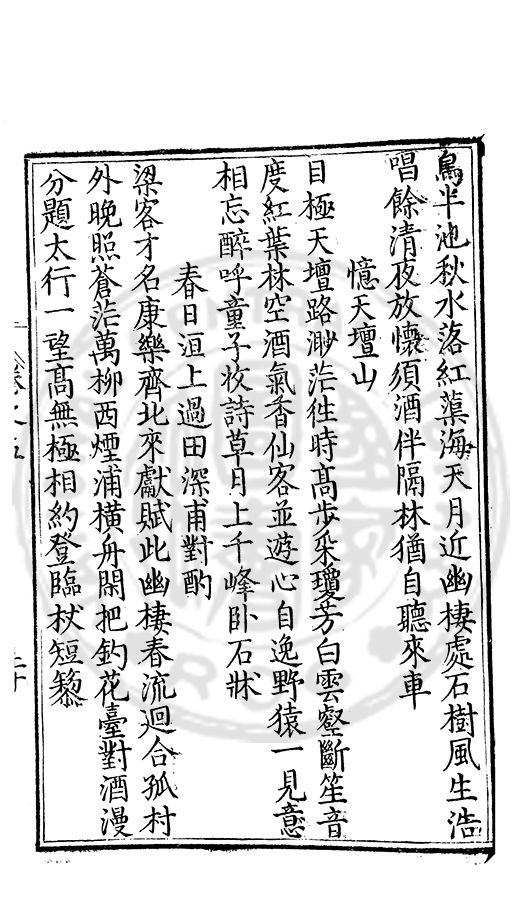 鳥半池秋水落紅蕖海天月近幽棲處石樹風生浩
唱餘清夜放懷須酒伴隔林猶自聽來車
憶天壇山
目極天壇路渺茫徃時髙步采瓊芳白雲壑斷笙音
度紅葉林空酒氣香仙客並遊心自逸野猿一見意
相忘醉呼童子收詩草月上千峰卧石牀
春日洹上過田深甫對酌
梁客才名康樂齊北來獻賦此幽棲春流迴合孤村
外晚照蒼茫萬柳西煙浦横舟閑把釣花臺對酒漫
分題太行一望髙無極相約登臨杖短藜
卷之五